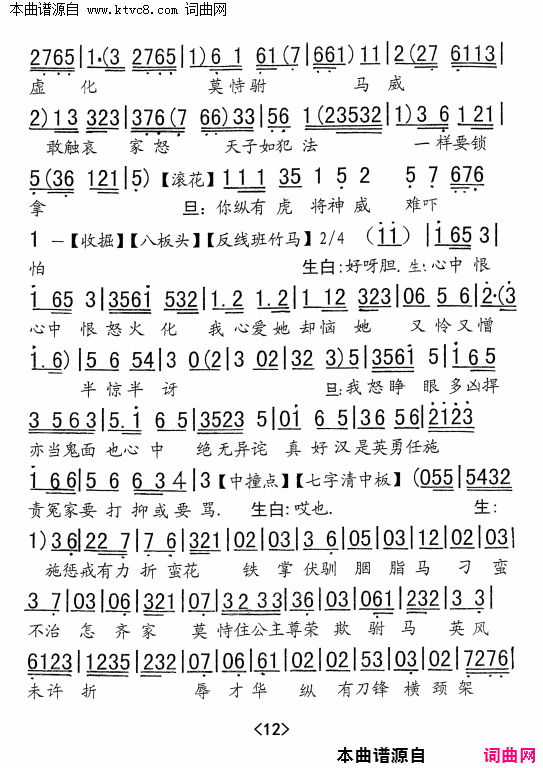 本曲谱源自 www.ktvc8.com 词曲网
2765|1·(3 2765|1)6 1 61(7|661)11|2(27 6113|
虚 化 莫恃驸 马 威
2)13 323|376(7 66)33|56 1(23532|1)36 121|
敢触哀 家怒 天子如犯 法 一样要锁
5(36 121|5)【滚花】111 35 1 5 2 5 7 676
拿 旦:你纵有 虎 将神 威 难吓
1 -【收掘】【八板头】【反线班竹马】2/4 (i i)|i 65 3|
怕 生白:好呀胆. 生:心中 恨
i 65 3|3561 532|1.2 1.2|1 12 323|06 5 6|2·(3
心中 恨怒火化 我心爱她却恼 她 又怜又憎
i.6)|5 6 54|3 0(2|3 02 32 3)5|3561 5|i 65
半惊半 讶 旦:我怒睁 眼多凶捍
3 563|5.i 65|3523 5|0i 6 5|35 56|2i23
亦当鬼面 也心中 绝无异诧 真好汉是英勇任施
i 66|5 6 6 34|3【中撞点】【七字清中板】(055|5432
责冤家要打抑或要骂. 生白:哎也. 生:
1)36|22 7|67 6|322|02|03|3 6|05|03|12|02|03|
施惩戒有力 折 蛮花 铁 掌 伏驯 胭 脂 马 刁 蛮
3 7|03|06|321|07|3233|36|03|061|232|3 3|
不治 怎 齐家 莫恃住公主尊荣 欺 驸 马 英风
6123|1235|232|07|06|61|02|02|53|03|02|7276|
未许 折 辱 才 华 纵 有刀锋 横 颈架
<12>
本曲谱源自 词曲网